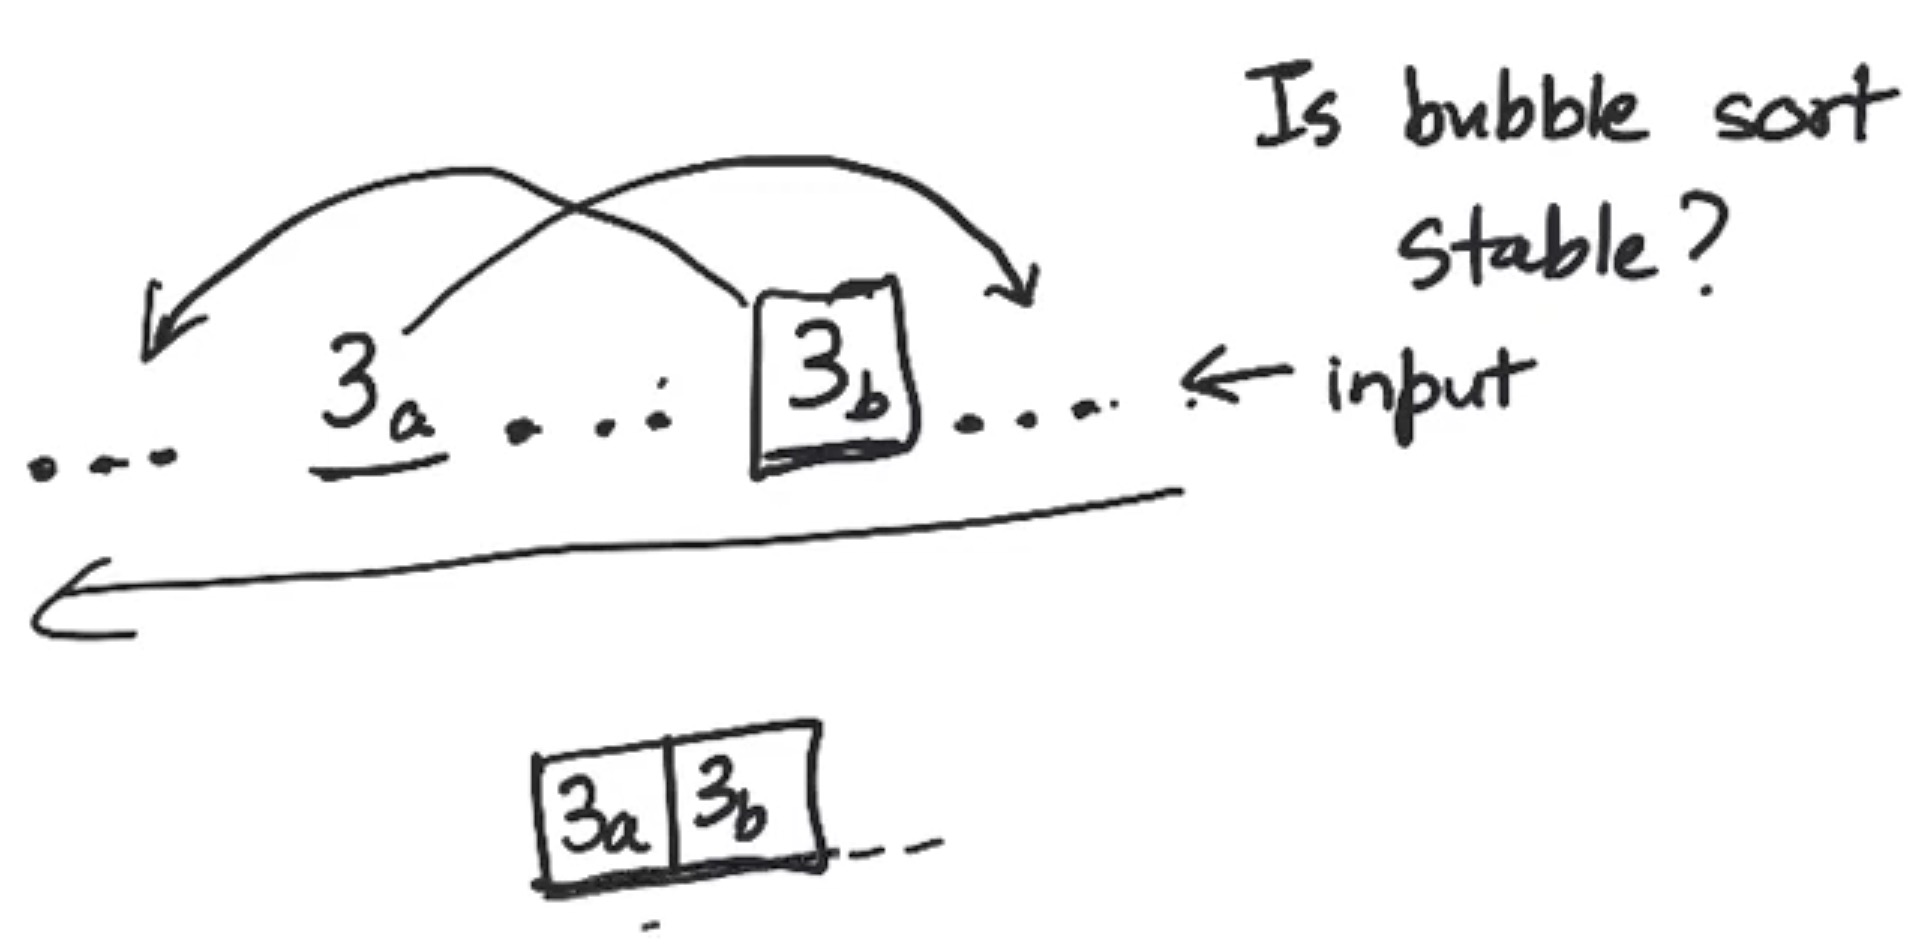 Is bubble sort
stable?
... 3a ... 3b .... ← input
3a 3b